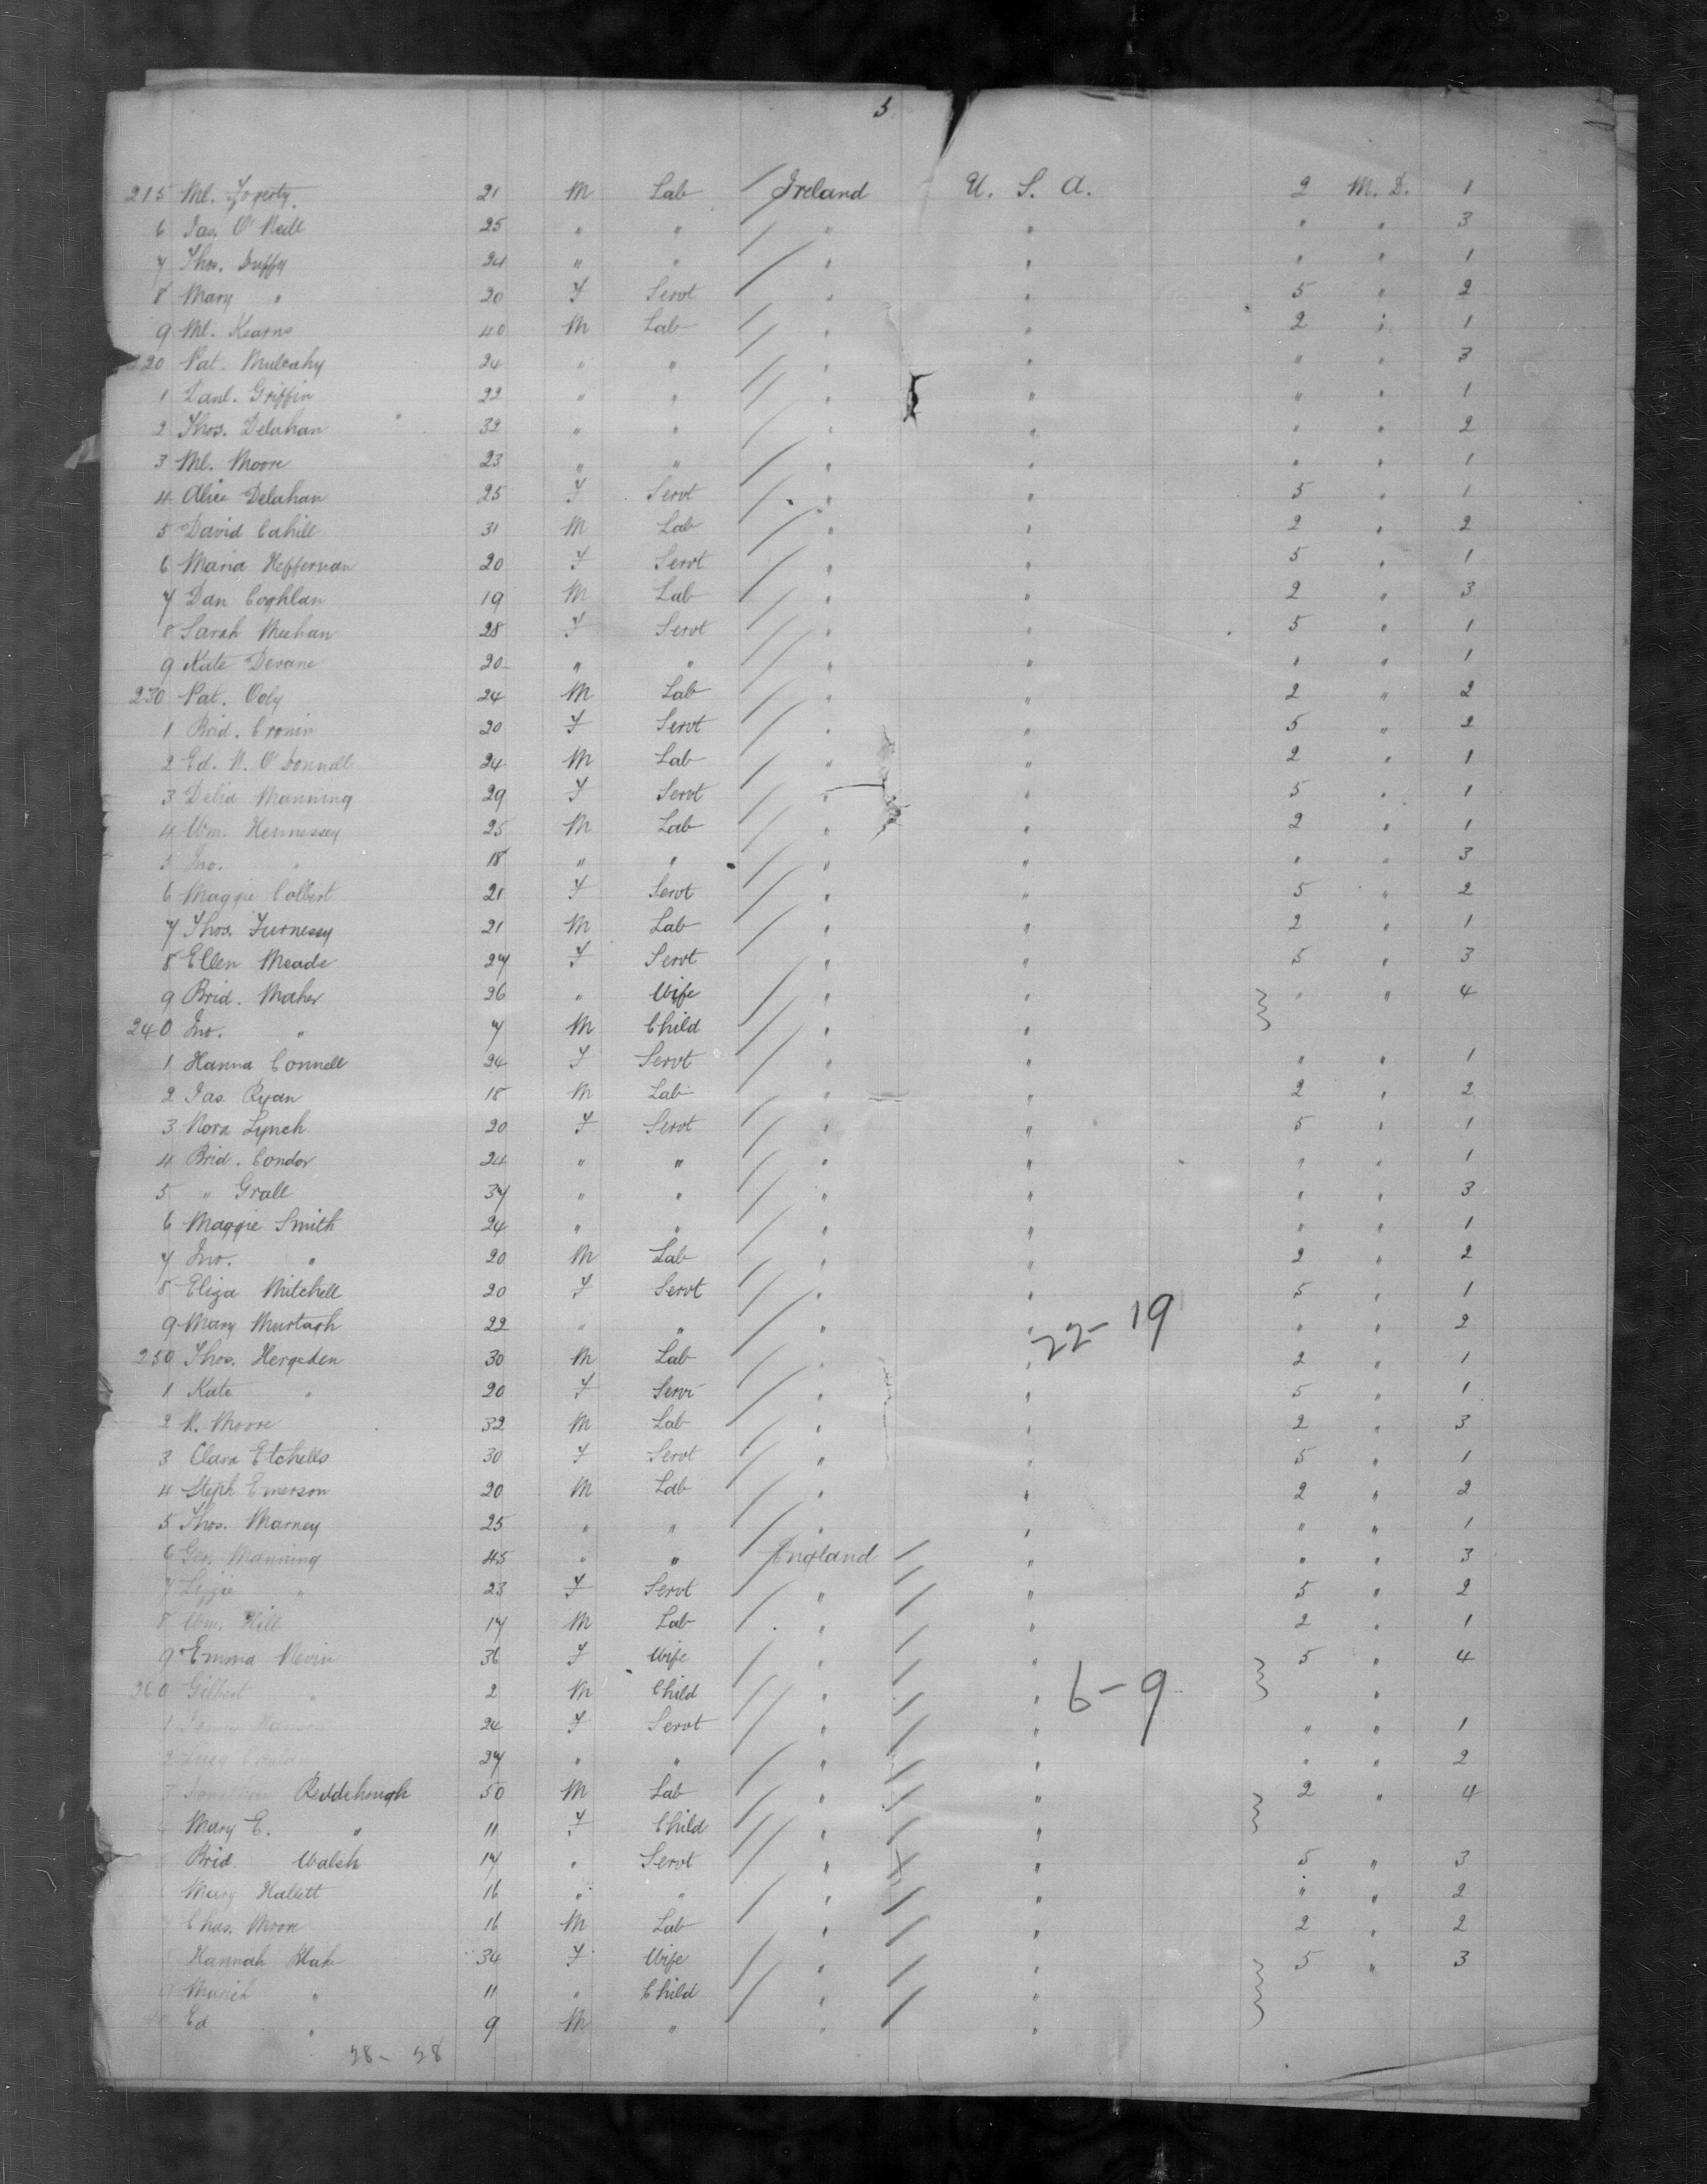 5
215 Ml. Fogerty 21 M Lab Ireland U. S. A. 2 M. D. 1
6 Jas. O'Neill 25 " " " " " " 3
7 Thos. Duffy 24 " " " " " " 1
8 Mary " 20 F Servt " " 5 " 2
9 Ml. Kearns 40 M Lab " " 2 " 1
220 Pat. Mulcahy 24 " " " " " " 3
1 Danl. Griffin 22 " " " " " " 1
2 Thos. Delahan 32 " " " " " " 2
3 Ml. Moore 23 " " " " " " 1
4 Alice Delahan 25 F Servt " " 5 " 1
5 David Cahill 31 M Lab " " 2 " 2
6 Maria Heffernan 20 F Servt " " 5 " 1
7 Dan Coghlan 19 M Lab " " 2 " 3
8 Sarah Meehan 28 F Servt " " 5 " 1
9 Kate Devane 20 " " " " " " 1
230 Pat. Ody 24 M Lab " " 2 " 2
1 Brid. Cronin 20 F Servt " " 5 " 2
2 Ed. N. O'Donnell 24 M Lab " " 2 " 1
3 Delia Manning 29 F Servt " " 5 " 1
4 Wm. Hennessey 25 M Lab " " 2 " 1
5 Jno. " 18 " " " " " " 3
6 Maggie Colbert 21 F Servt " " 5 " 2
7 Thos. Furnessy 21 M Lab " " 2 " 1
8 Ellen Meade 27 F Servt " " 5 " 3
9 Brid. Maher 26 " Wife " " " " 4
240 Jno. " 7 M Child " "
1 Hanna Connell 24 F Servt " " " " 1
2 Jas. Ryan 18 M Lab " " 2 " 2
3 Nora Lynch 20 F Servt " " 5 " 1
4 Brid. Condor 24 " " " " " " 1
5 " Grall 37 " " " " " " 3
6 Maggie Smith 24 " " " " " " 1
7 Jno. " 20 M Lab " " 2 " 2
8 Eliza Mitchell 20 F Servt " " 5 " 1
9 Mary Murtagh 22 " " " " " " 2
22-19
250 Thos. Hergeden 30 M Lab " " 2 " 1
1 Kate " 20 F Servt " " 5 " 1
2 N. Moore 32 M Lab " " 2 " 3
3 Clara Etchells 30 F Servt " " 5 " 1
4 Steph Emerson 20 M Lab " " 2 " 2
5 Thos. Marney 25 " " " " " " 1
6 Geo. Manning 45 " " England " " " 3
7 Lizzie " 23 F Servt " " 5 " 2
8 Wm. Hill 17 M Lab " " 2 " 1
9 Emma Nevin 36 F Wife " " 5 " 4
260 Gilbert " 2 M Child " " "
6-9
1 24 F Servt " " " " 1
2 Lucy 27 " " " " " " 2
3 Reddehough 50 M Lab " " 2 " 4
Mary E. " 11 F Child " "
Brid. Walsh 17 " Servt " " 5 " 3
Mary Halett 16 " " " " " " 2
Chas. Moore 16 M Lab " " 2 " 2
Hannah Blake 34 F Wife " " 5 " 3
9 " 11 " Child " "
Ed " 9 M " " "
28- 28